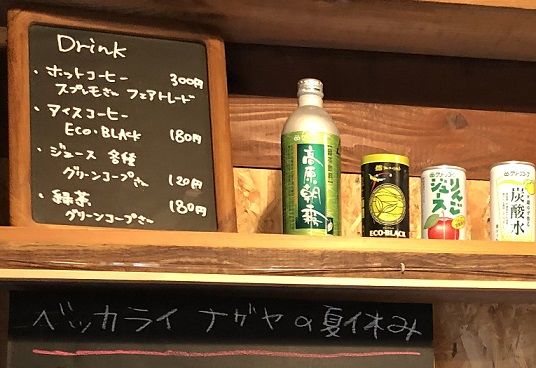 Drink
・ホットコーヒー 300円
スプレモさん フェアトレード
・アイスコーヒー
ECO・BLACK 180円
・ジュース 各種
グリーンコープさん 120円
・緑茶
グリーンコープさん 180円
高原朝霧
ECO-BLACK
りんご
ジュース
炭酸水
ベッカライ ナガヤの夏休み